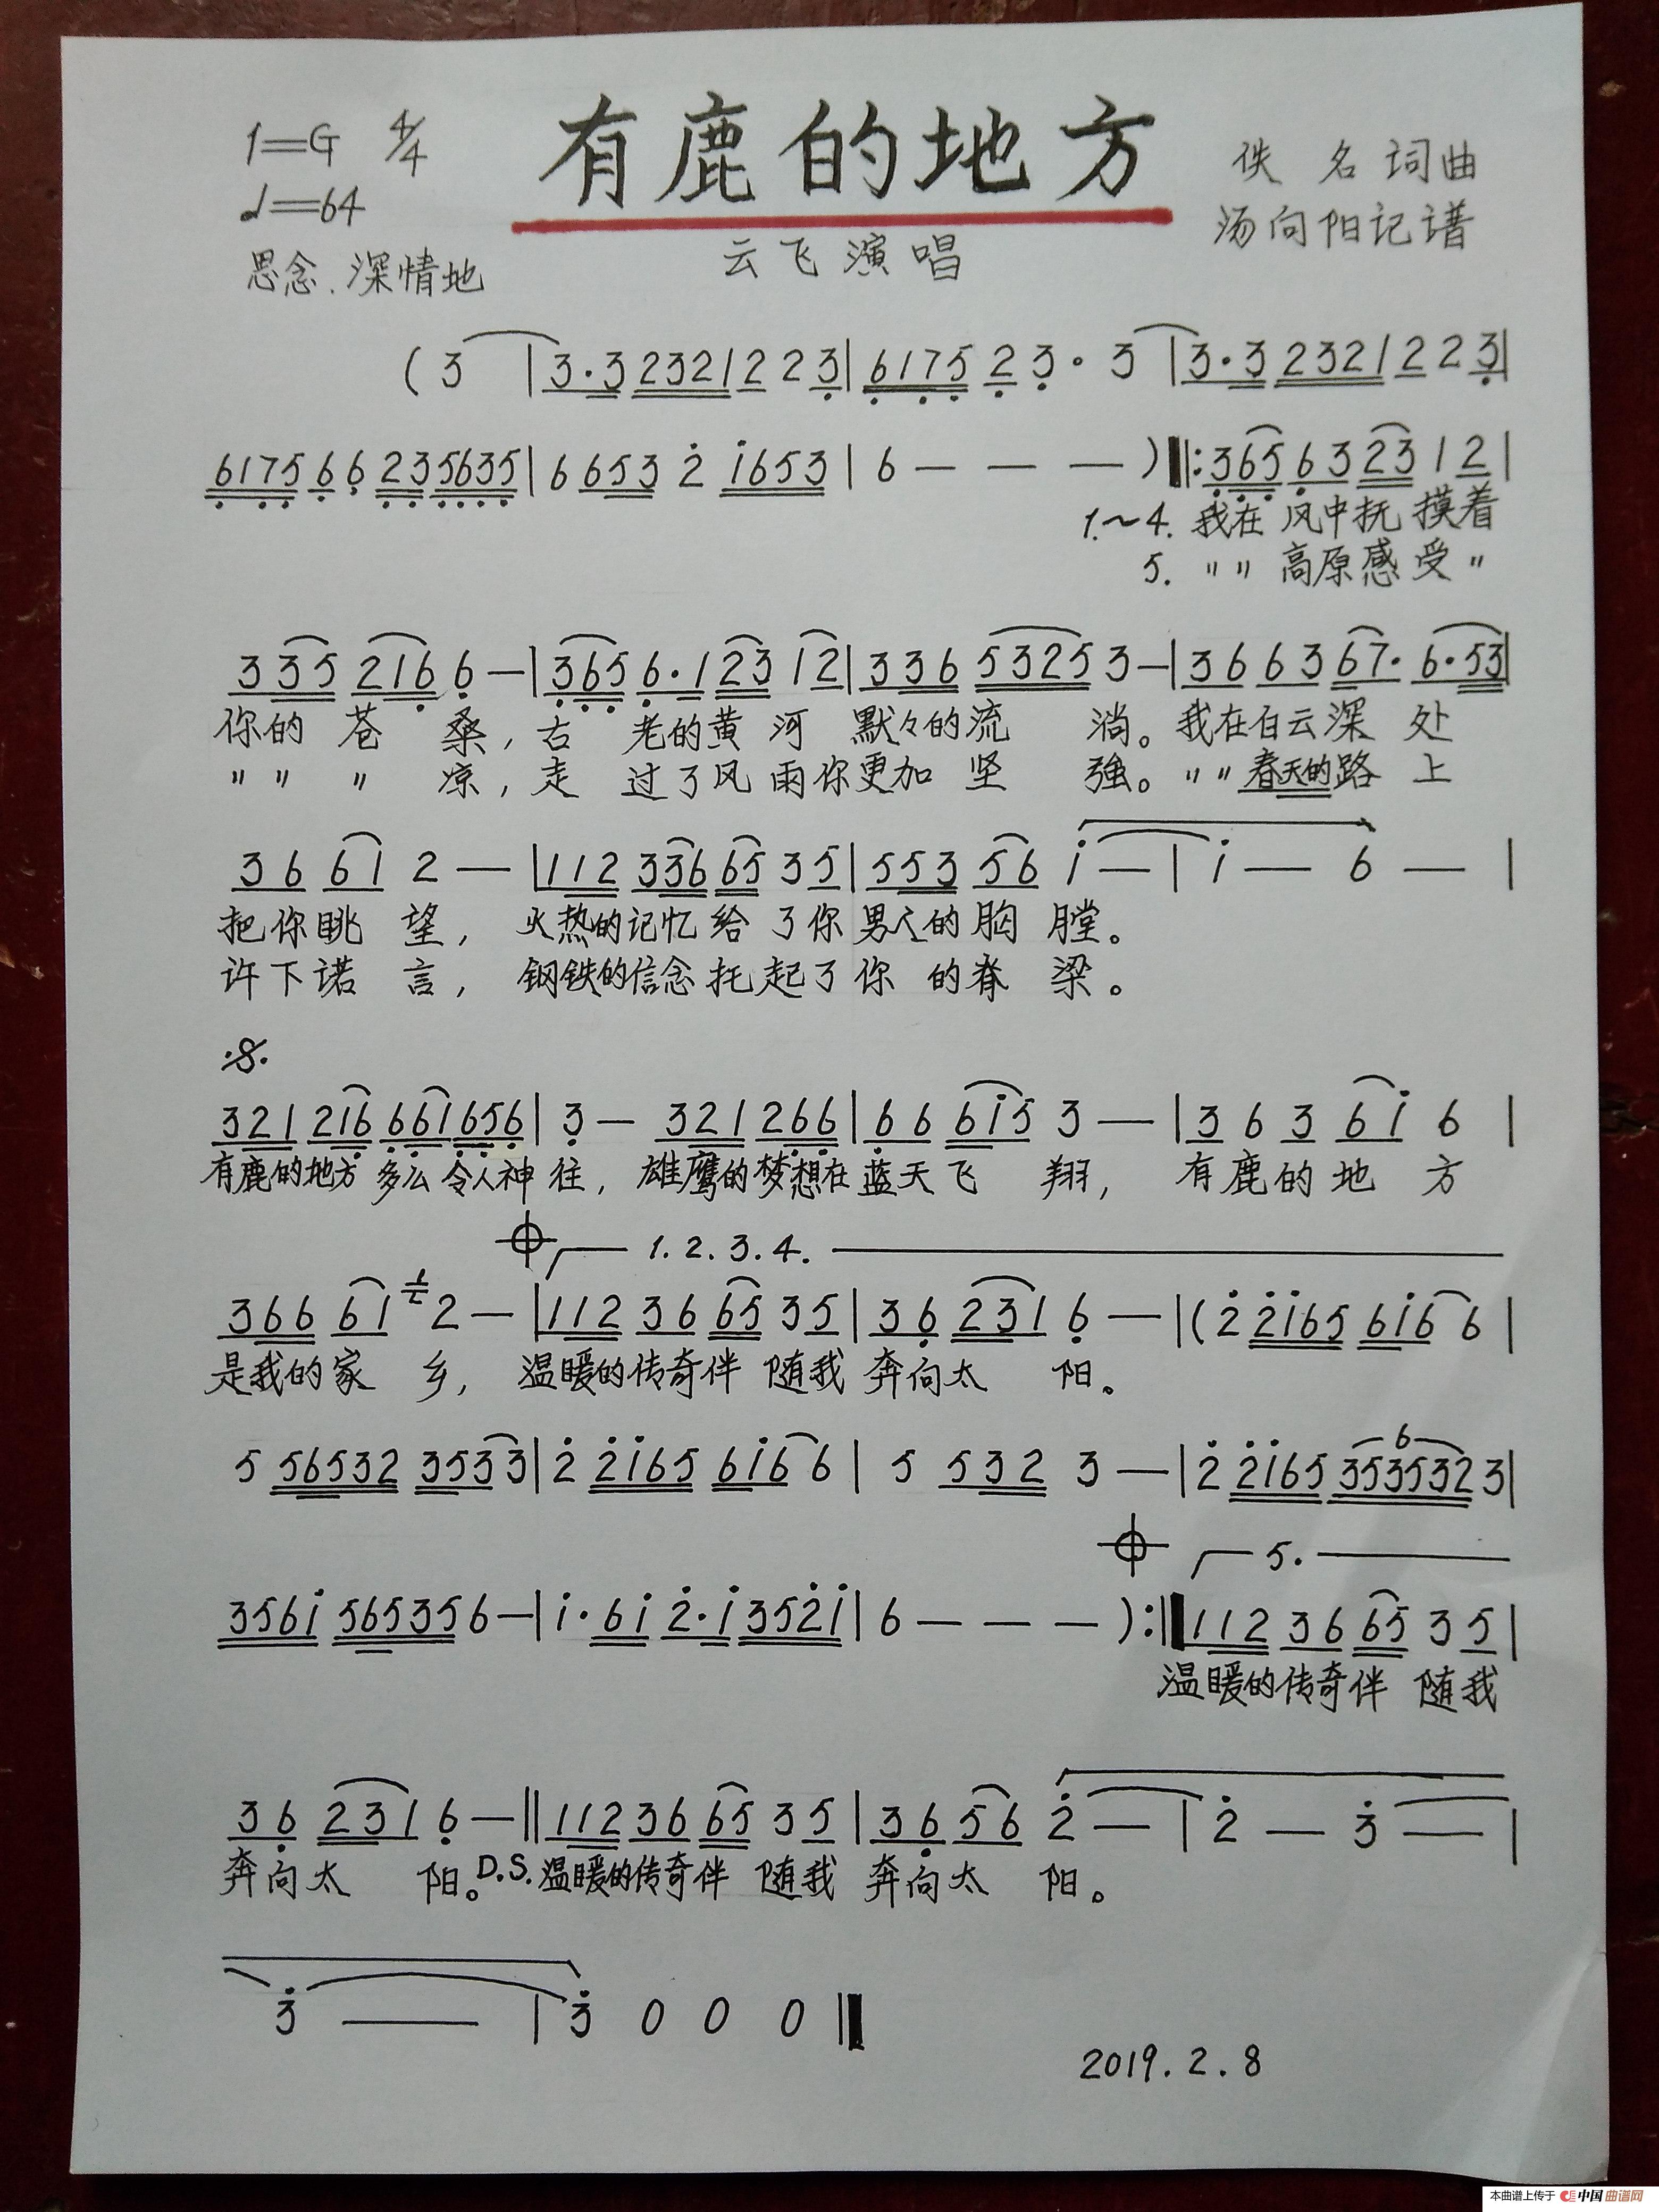 有鹿的地方
1=G 4/4
♩=64
思念、深情地
云飞演唱
佚名词曲
汤向阳记谱
( 3 | 3·3 2321 2 2 3 | 6175 2 3· 3 | 3·3 2321 2 2 3 |
6175 6 6 23 5635 | 6 653 2 1653 | 6 — — — ) ‖: 365 63 23 1 2 |
1.~4. 我在风中抚摸着
5. 〃〃高原感受〃
3 35 216 6 — | 365 6·1 23 12 | 336 5325 3 — | 36 63 67· 6·53 |
你的苍桑，古老的黄河默々的流淌。我在白云深处
〃〃〃凉，走过了风雨你更加坚強。〃〃春天的路上
36 61 2 — | 112 336 65 35 | 553 56 1 — | 1 — 6 — |
把你眺望，火热的记忆给了你男人的胸膛。
许下诺言，钢铁的信念托起了你的脊梁。
321 216 661 656 | 3 — 321 266 | 66 615 3 — | 3 6 3 61 6 |
有鹿的地方多么令人神往，雄鹰的梦想在蓝天飞翔，有鹿的地方
1.2.3.4.
366 61 2 — | 112 36 65 35 | 36 231 6 — | ( 2 2165 616 6 |
是我的家乡，温暖的传奇伴随我奔向太阳。
5 56532 353 3 | 2 2165 616 6 | 5 532 3 — | 2 2165 353532 3 |
5.
3561 565356 — | 1·61 2·1 3521 | 6 — — — ) :‖ 112 36 65 3 5 |
温暖的传奇伴随我
36 231 6 — ‖ 112 36 65 3 5 | 36 56 2 — | 2 — 3 — |
奔向太阳。D.S.温暖的传奇伴随我奔向太阳。
3 — | 3 0 0 0 ‖
2019.2.8
本曲谱上传于 中国曲谱网